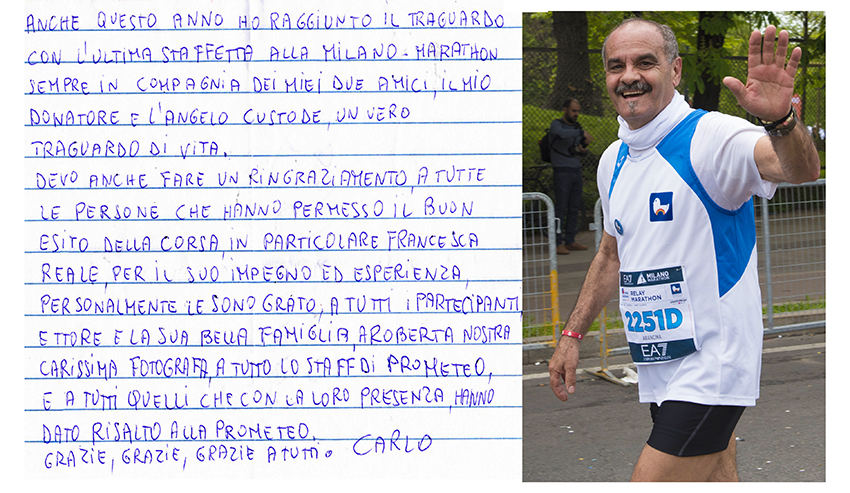 ANCHE QUESTO ANNO HO RAGGIUNTO IL TRAGUARDO
CON L'ULTIMA STAFFETTA ALLA MILANO-MARATHON
SEMPRE IN COMPAGNIA DEI MIEI DUE AMICI, IL MIO
DONATORE E L'ANGELO CUSTODE, UN VERO
TRAGUARDO DI VITA.
DEVO ANCHE FARE UN RINGRAZIAMENTO, A TUTTE
LE PERSONE CHE HANNO PERMESSO IL BUON
ESITO DELLA CORSA, IN PARTICOLARE FRANCESCA
REALE, PER IL SUO IMPEGNO ED ESPERIENZA,
PERSONALMENTE LE SONO GRATO, A TUTTI I PARTECIPANTI,
ETTORE E LA SUA BELLA FAMIGLIA, A ROBERTA NOSTRA
CARISSIMA FOTOGRAFA, A TUTTO LO STAFF DI PROMETEO,
E A TUTTI QUELLI CHE CON LA LORO PRESENZA, HANNO
DATO RISALTO ALLA PROMETEO.
GRAZIE, GRAZIE, GRAZIE A TUTTI. CARLO
EA7 MILANO MARATHON
RELAY MARATHON
2251D
EA7